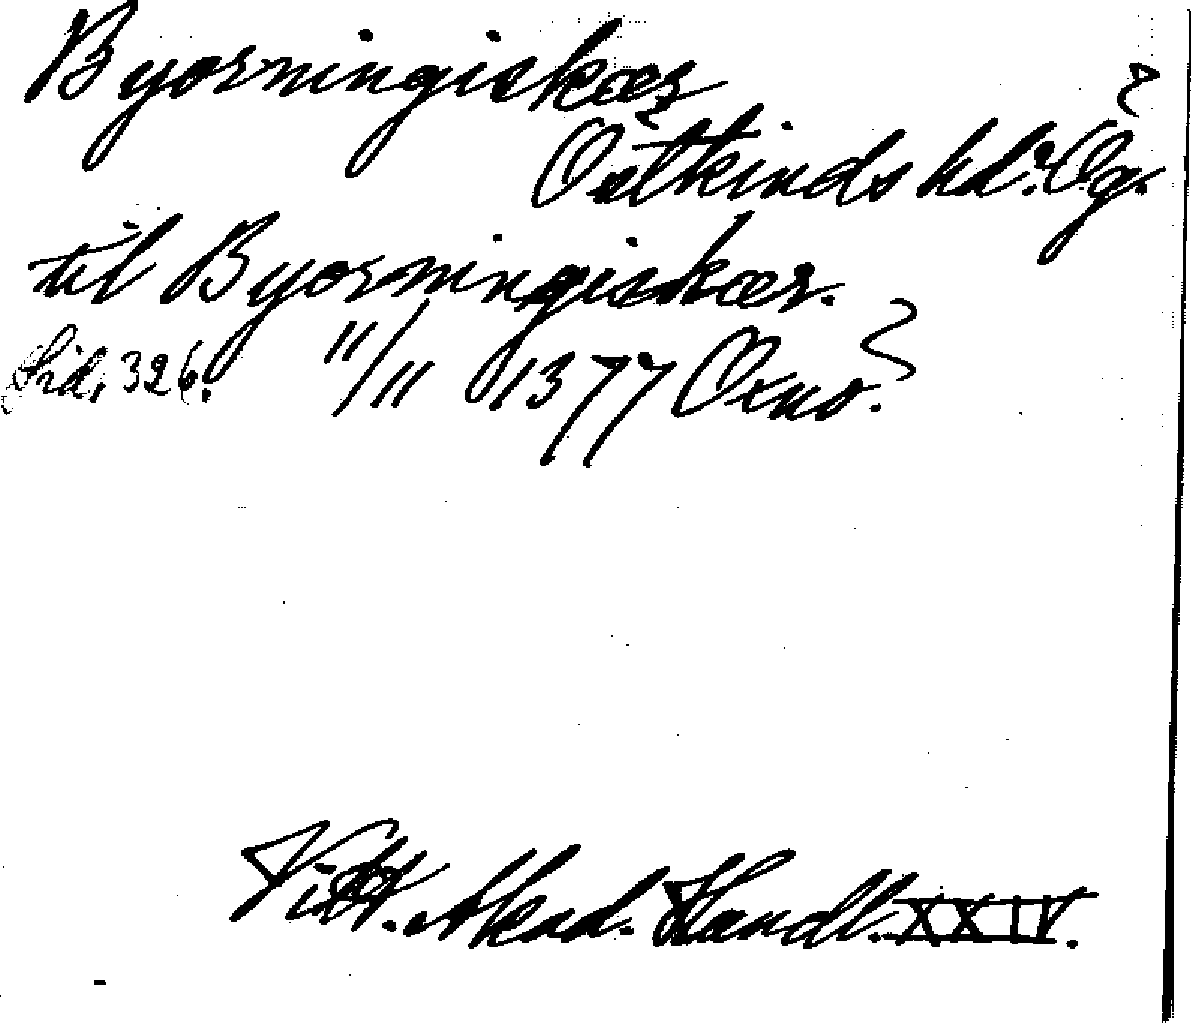 Byorningiskær
Östkinds hd. Ög.
til Byorningiskær.
Sid. 326. 11/11 1377 Oxnö.
Vitt. Akad. Handl. XXIV.